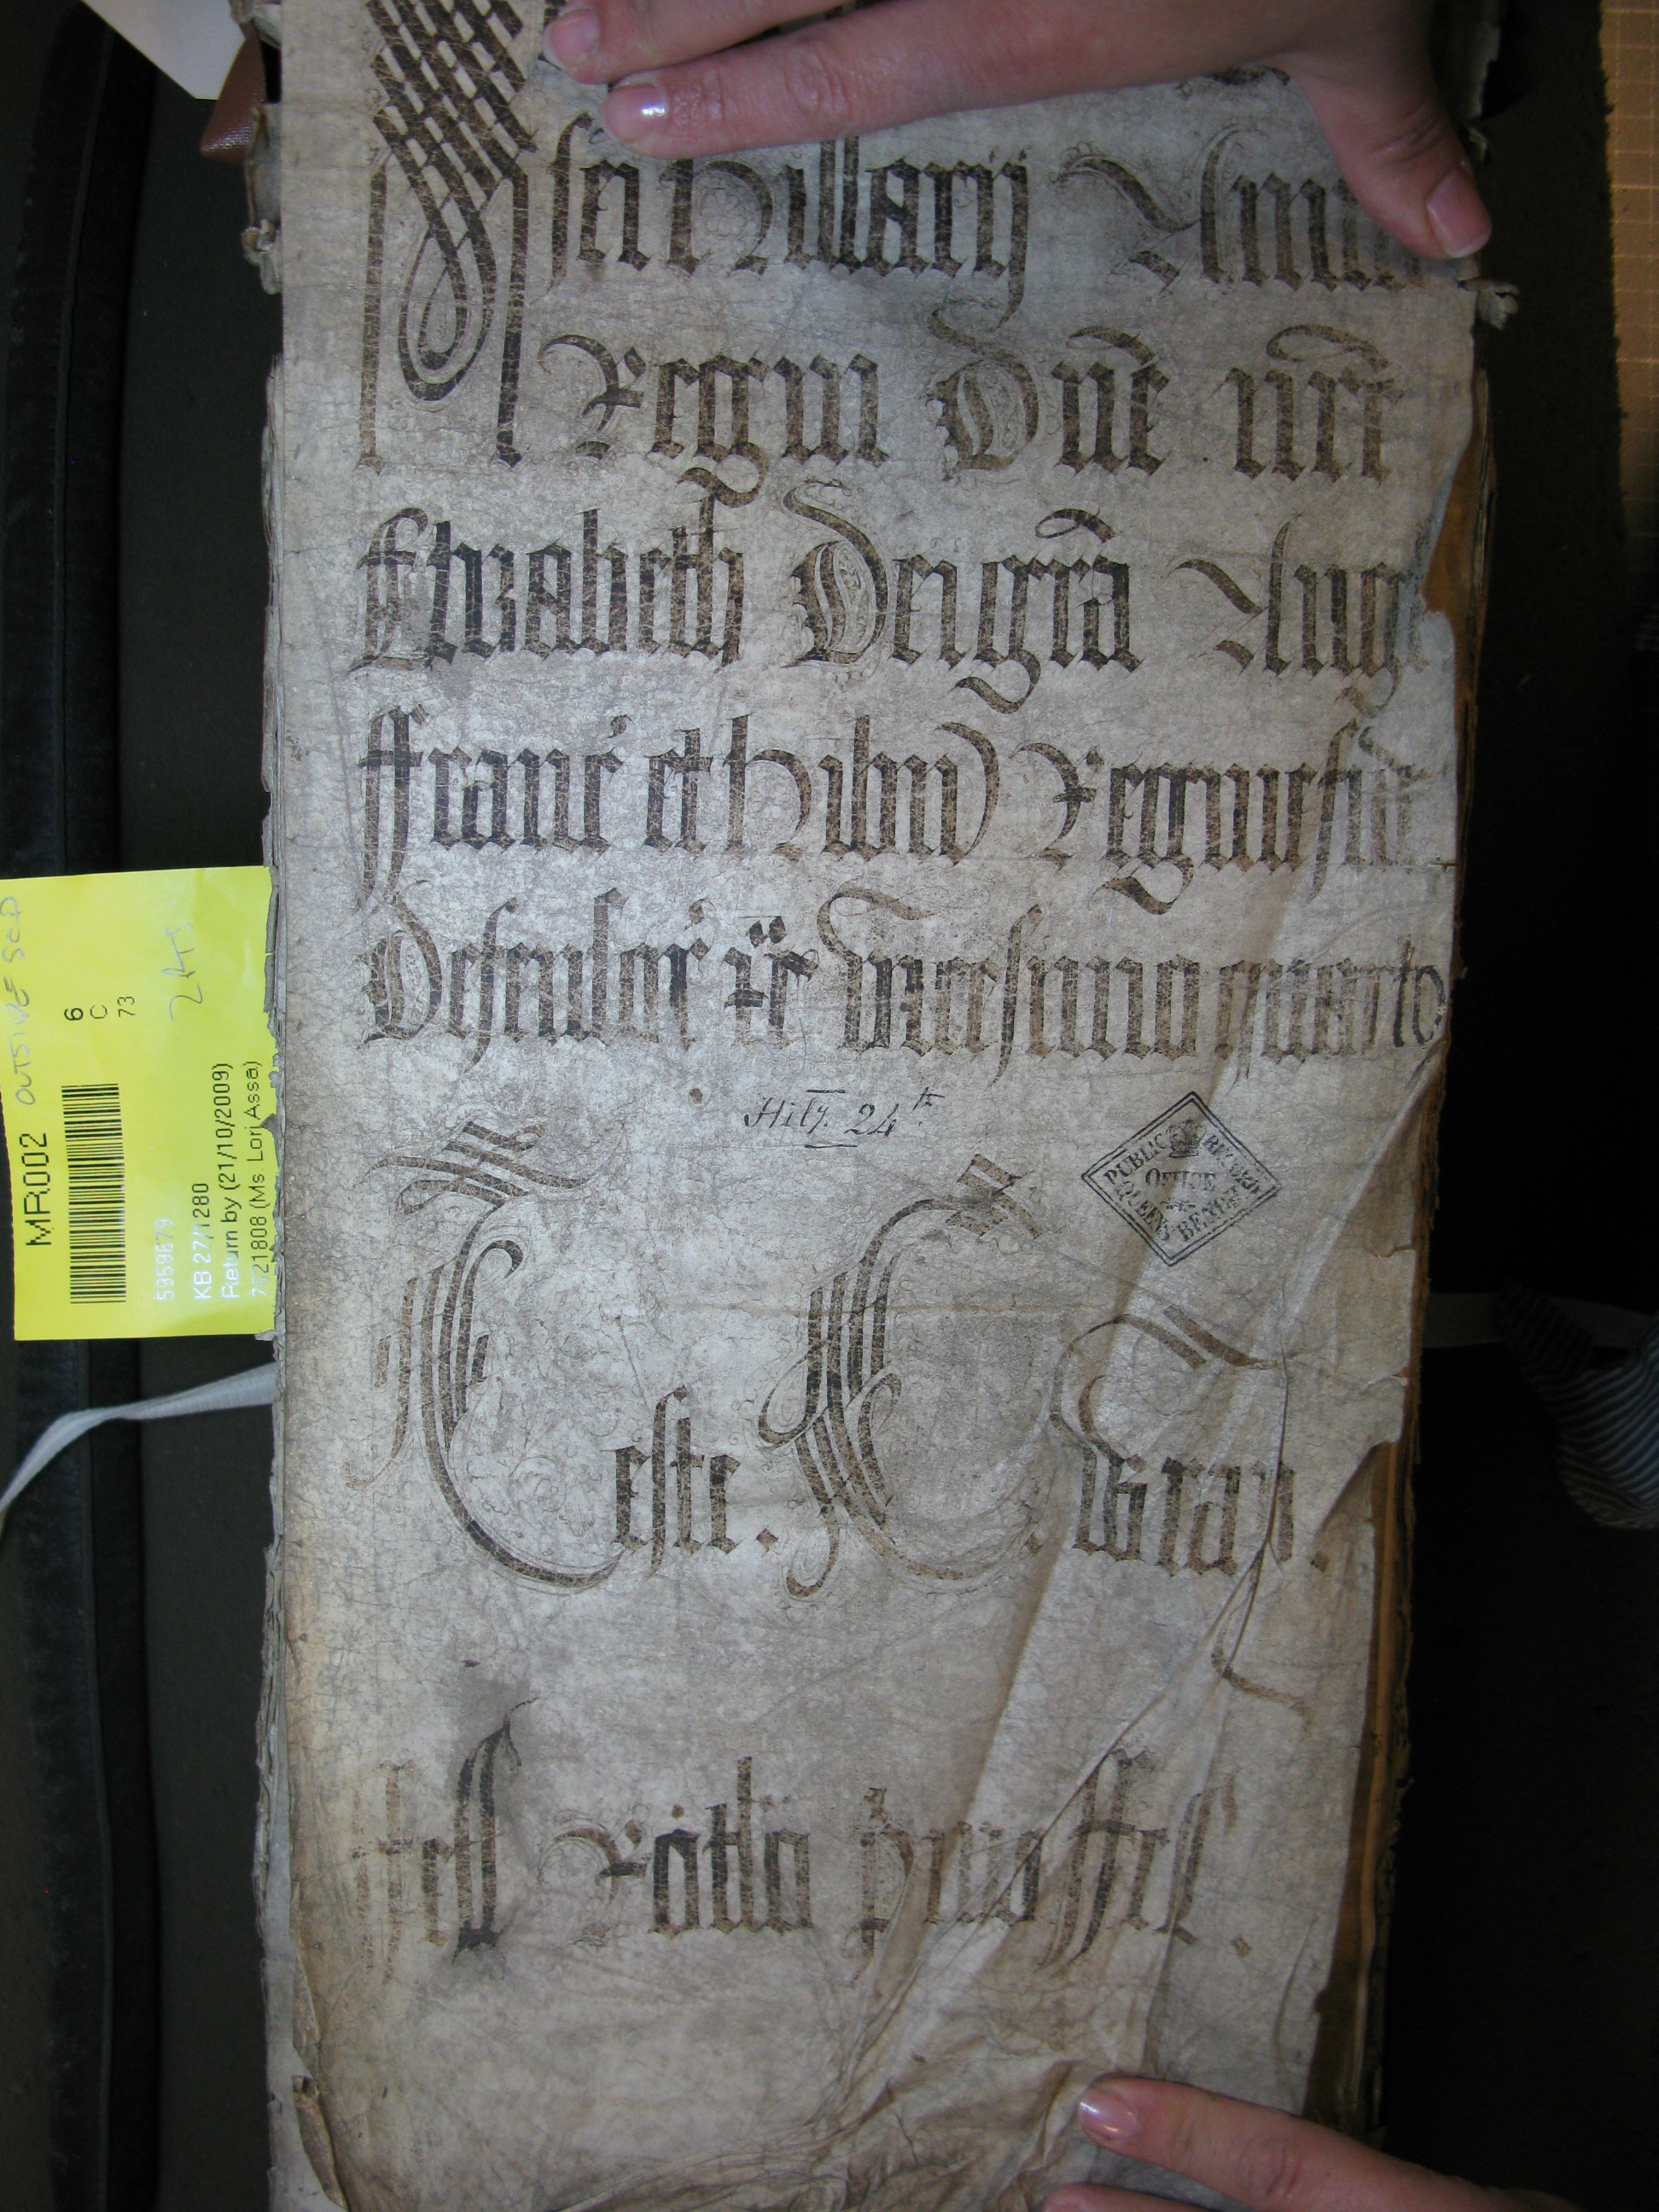 Hillarij Anno
Regni Dn̄e nr̄e
Elizabeth Dei gr̄a Angl
ffranc̓ et Hib̄n Regine fid
Defensor̓ &c̄ vicesimo quarto
Hil̄y. 24th
PUBLIC RECORD
OFFICE
QUEENS BENCH
Teste . C . Wray .
Rot̄lo
MR002 OUTSIDE SCD
6
C
73
5959679
KB 27/1280
Return by (21/10/2009)
7621808 (Ms. Lori Assa)